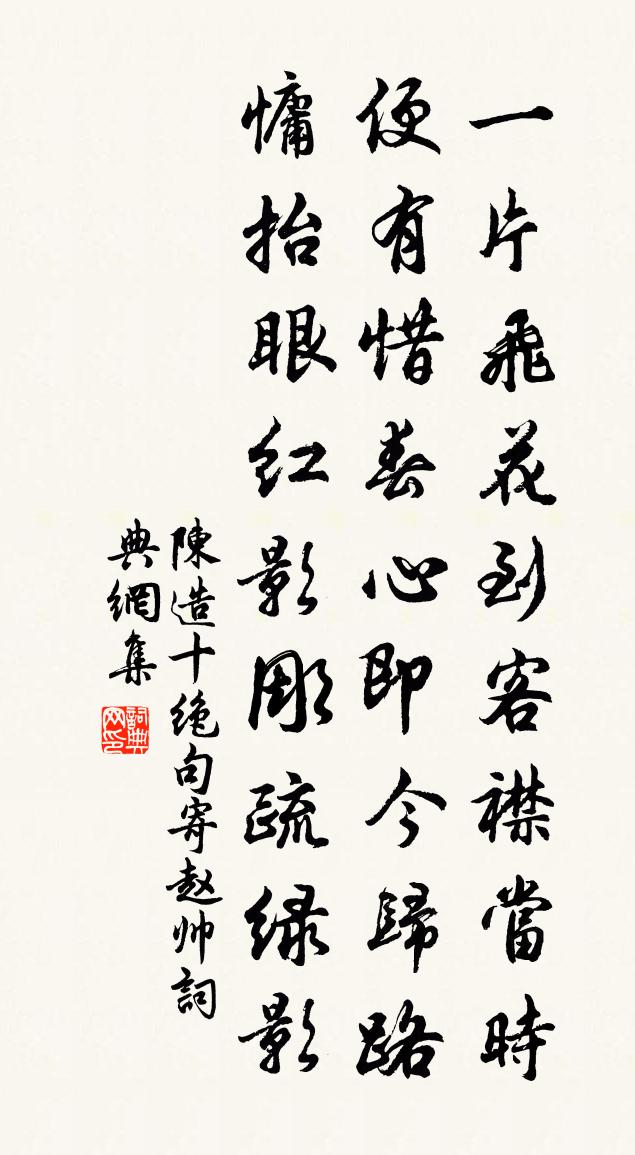 一片飛花到客襟當時
便有惜春心即今歸路
慵抬眼紅影彫疏緑影
陳造十絶句寄赵帅詞
典網集
詞典网印